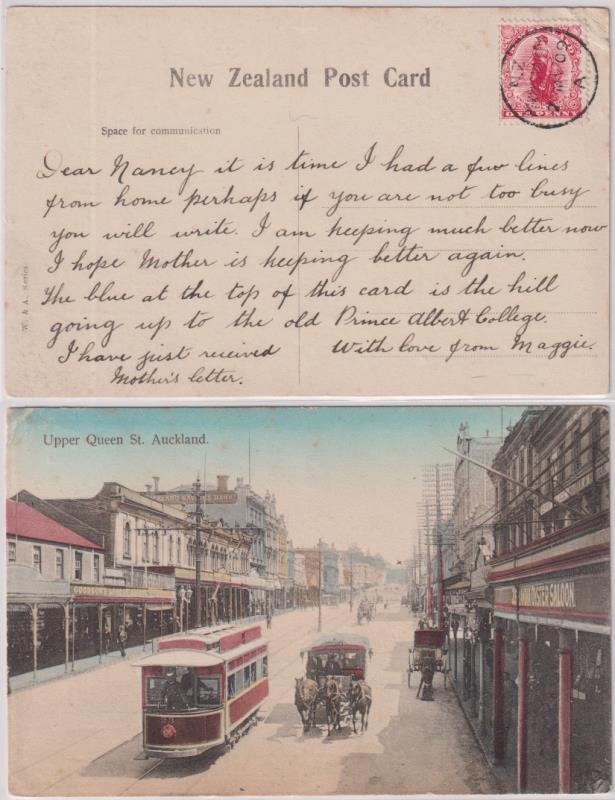 New Zealand Post Card
Space for communication
ONE PENNY
Dear Nancy it is time I had a few lines
from home perhaps if you are not too busy
you will write. I am keeping much better now
I hope Mother is keeping better again.
The blue at the top of this card is the hill
going up to the old Prince Albert College.
I have just received With love from Maggie.
Mother's letter.
W. & A. Series
Upper Queen St. Auckland.
SAVINGS BANK
OYSTER SALOON